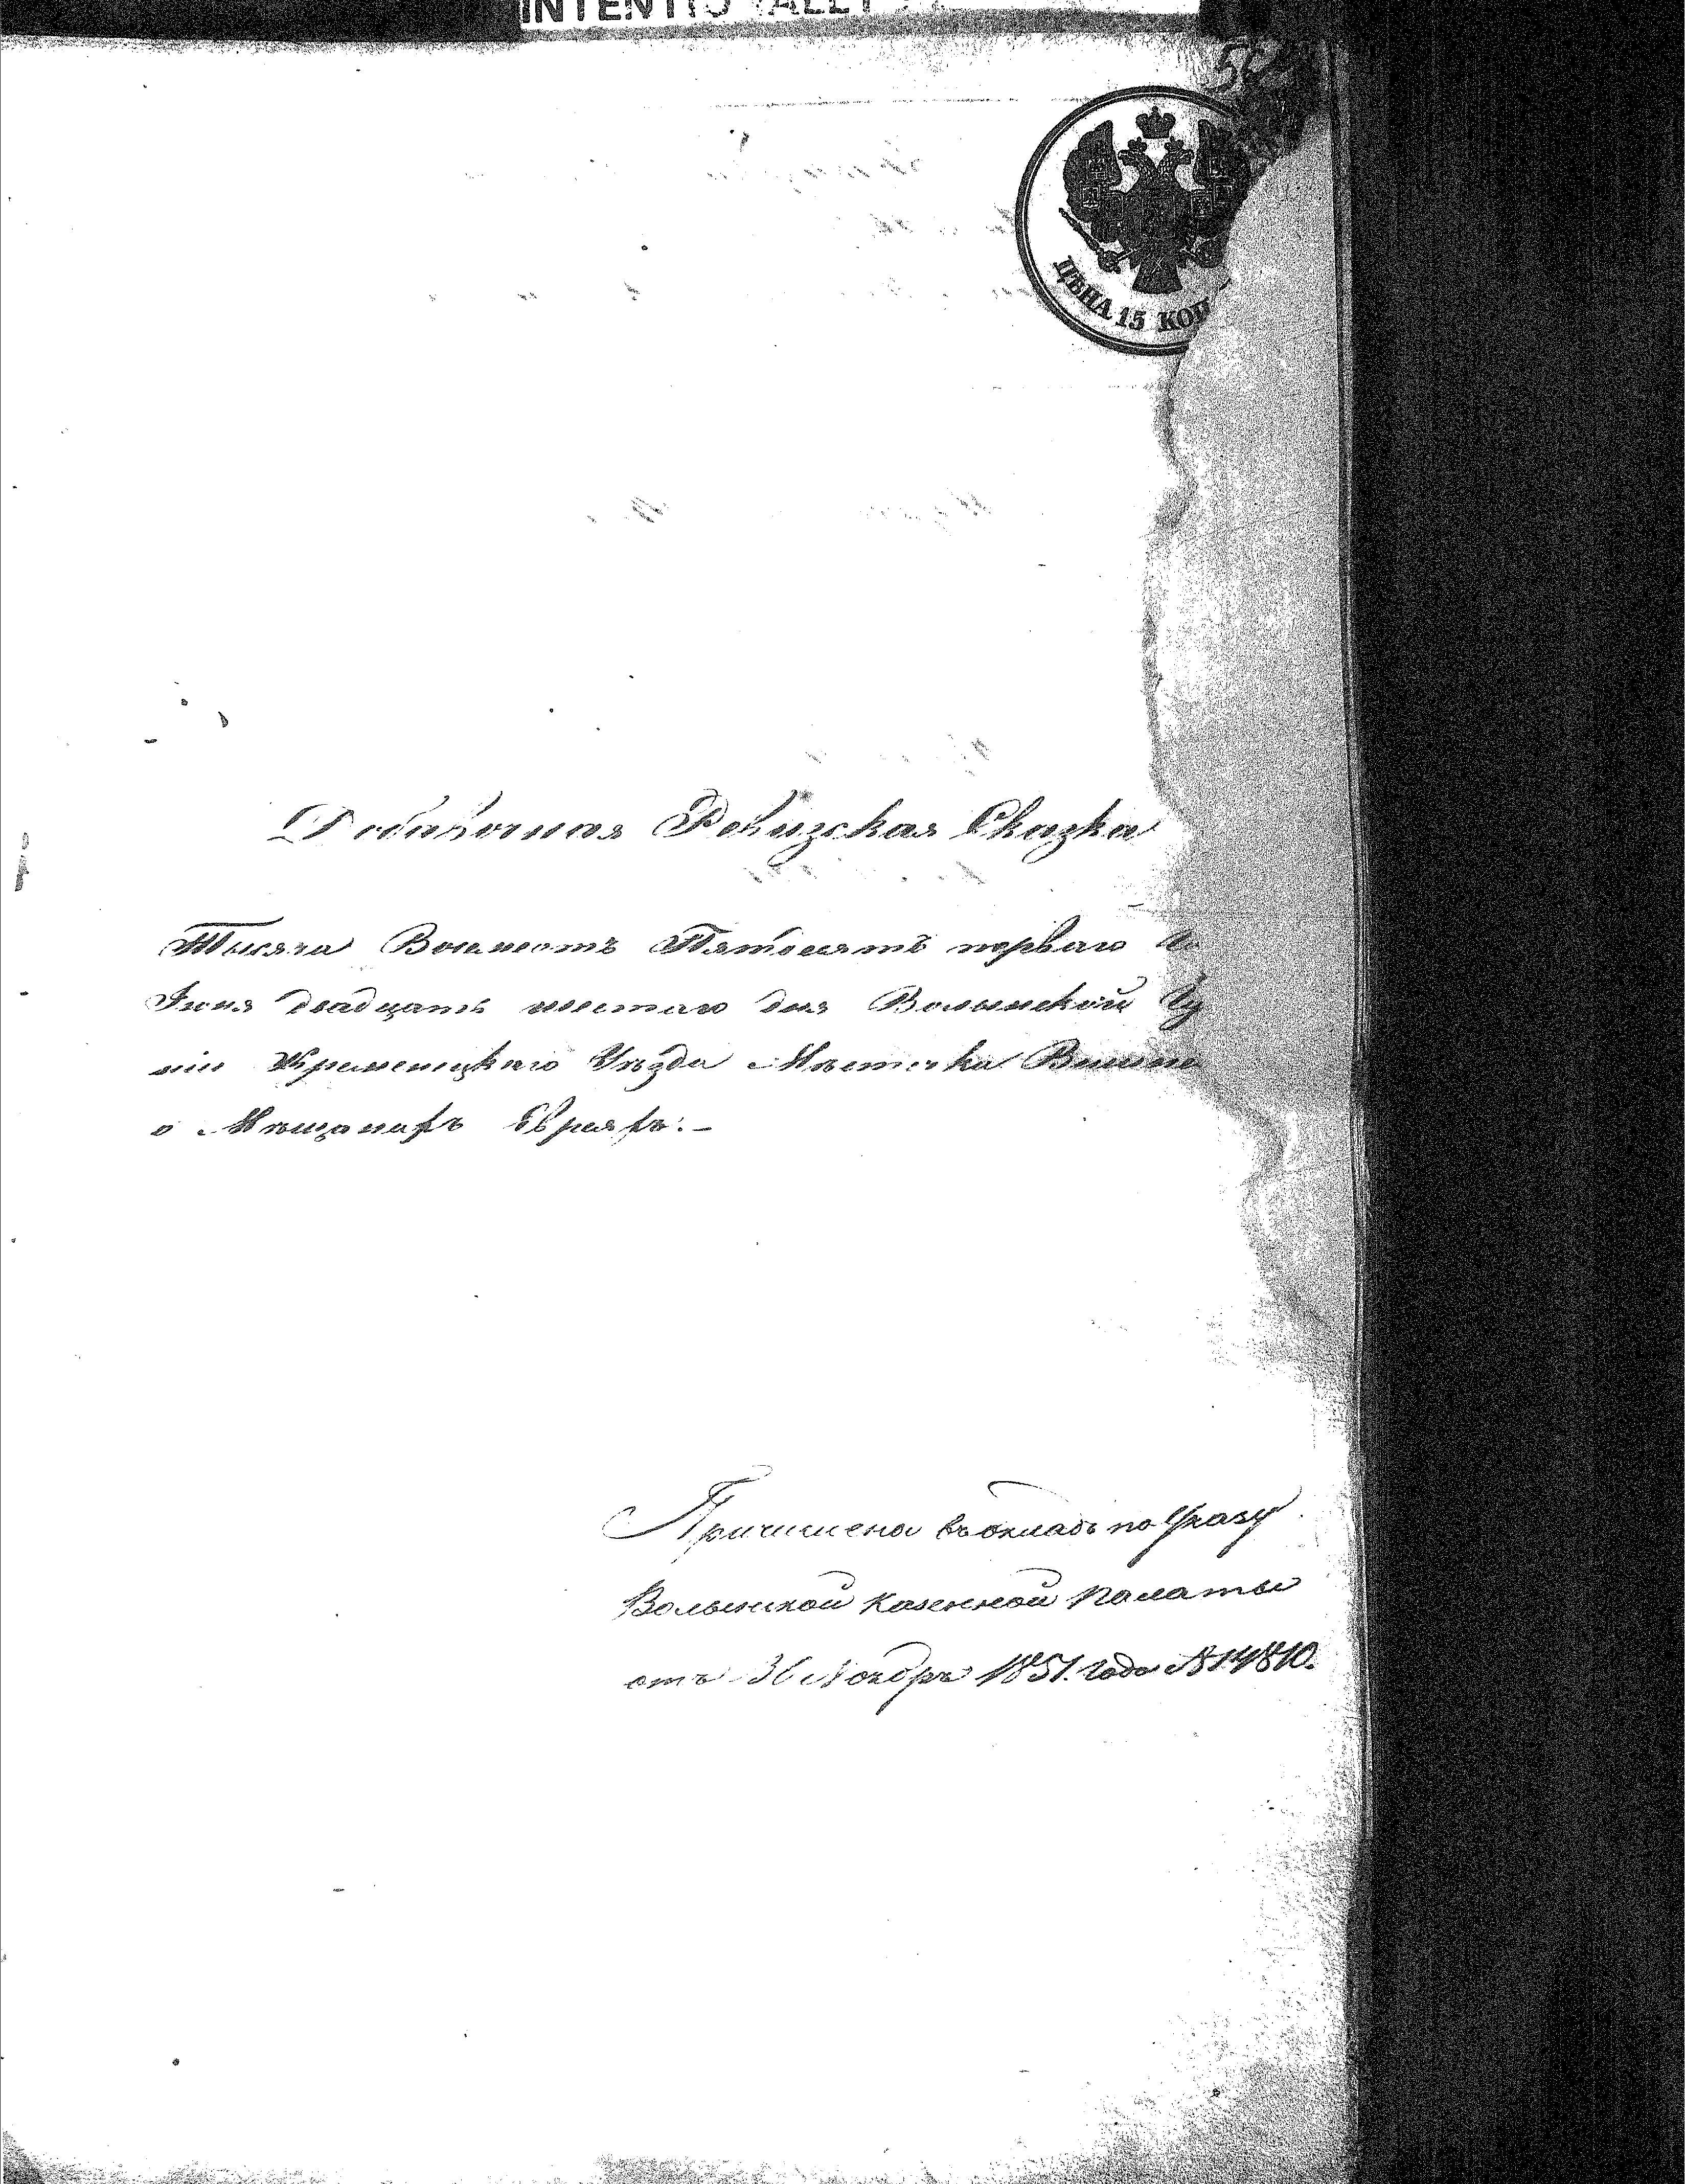 ЦѢНА 15 КОП
Добавочная Ревизская Сказка
Тысяча Восемсотъ Пятдесятъ перваго
Іюня двадцать шестаго дня Волынской Гу
ніи Кременецкаго Уѣзда Мѣстечка Вишне
о Мѣщанахъ Евреяхъ:-
Причислена въ окладъ по Указу
Волынской Казенной Палаты
отъ Ноября 1851. года №14810.